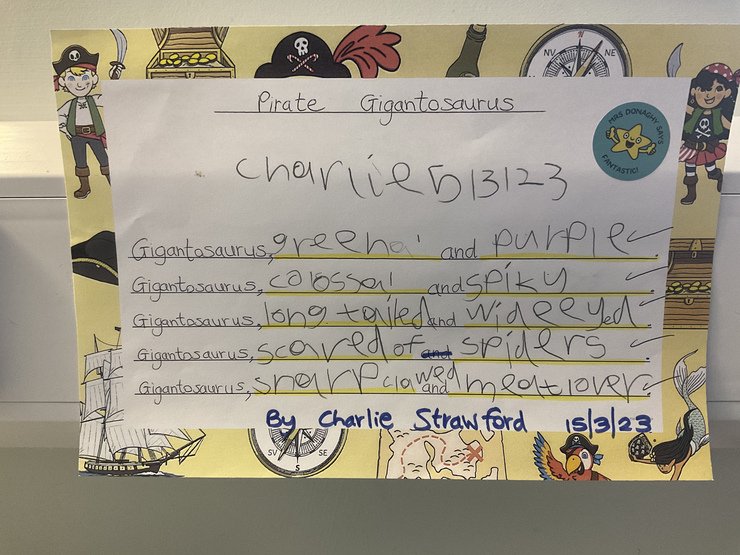 NV
N
NE
Pirate Gigantosaurus
MRS DONAGHY SAYS
FANTASTIC!
Charlie 5/3/23
Gigantosaurus, green and purple.
Gigantosaurus, colossal and spiky.
Gigantosaurus, long tailed and wide eyed.
Gigantosaurus, scared of and spiders.
Gigantosaurus, sharp clawed and meat lover.
By Charlie Strawford 15/3/23
SV
S
SE